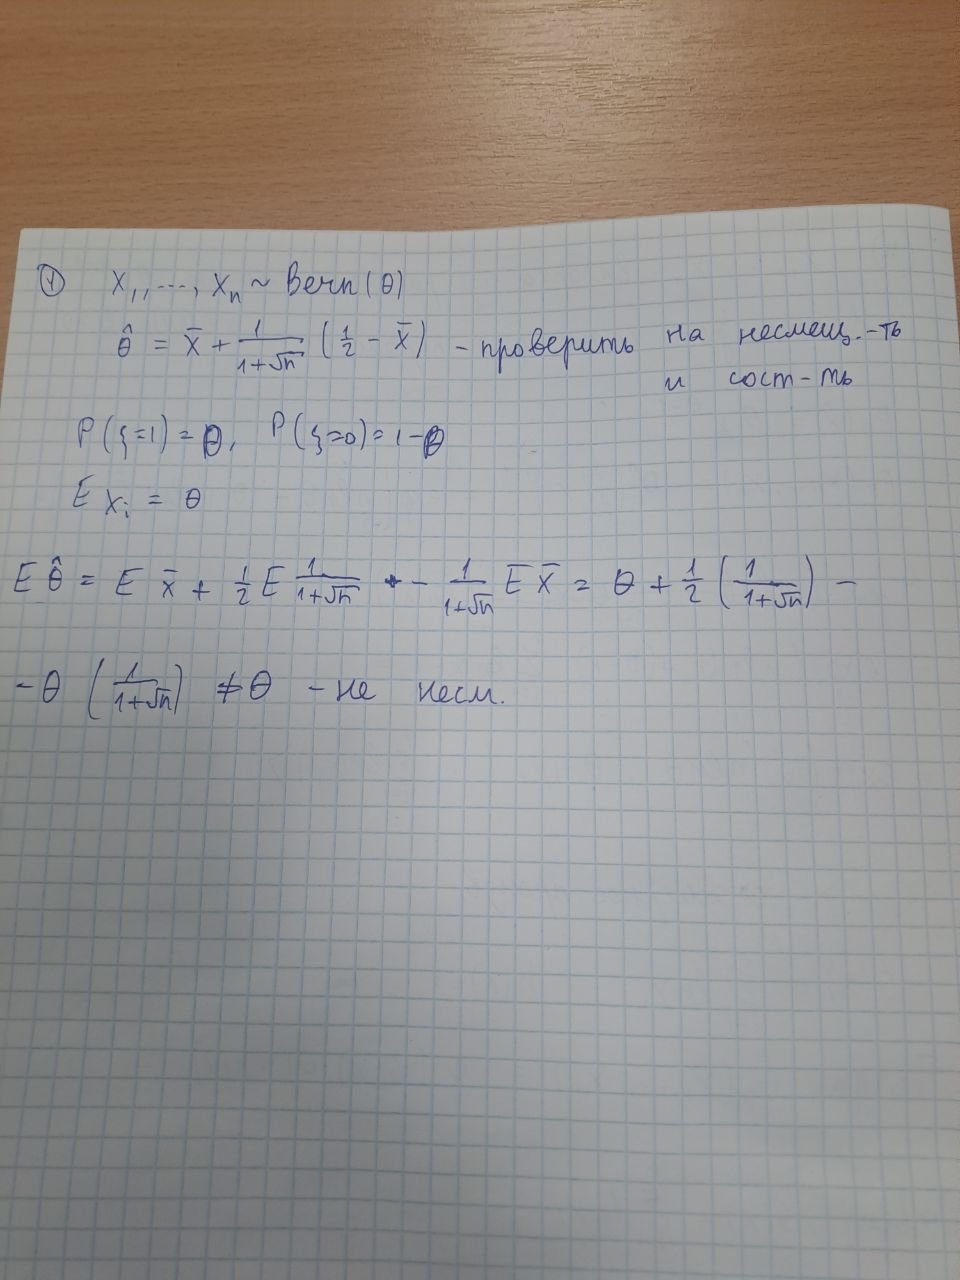 ④ X₁, ..., Xₙ ~ Bern(θ)
θ̂ = x̄ + 1/(1+√n) (1/2 − x̄) - проверить на несмещ.-ть
и сост-ть
P(ξ=1) = θ, P(ξ=0) = 1−θ
E Xᵢ = θ
E θ̂ = E x̄ + 1/2 E 1/(1+√n) − 1/(1+√n) E x̄ = θ + 1/2 (1/(1+√n)) −
−θ (1/(1+√n)) ≠ θ − не несм.